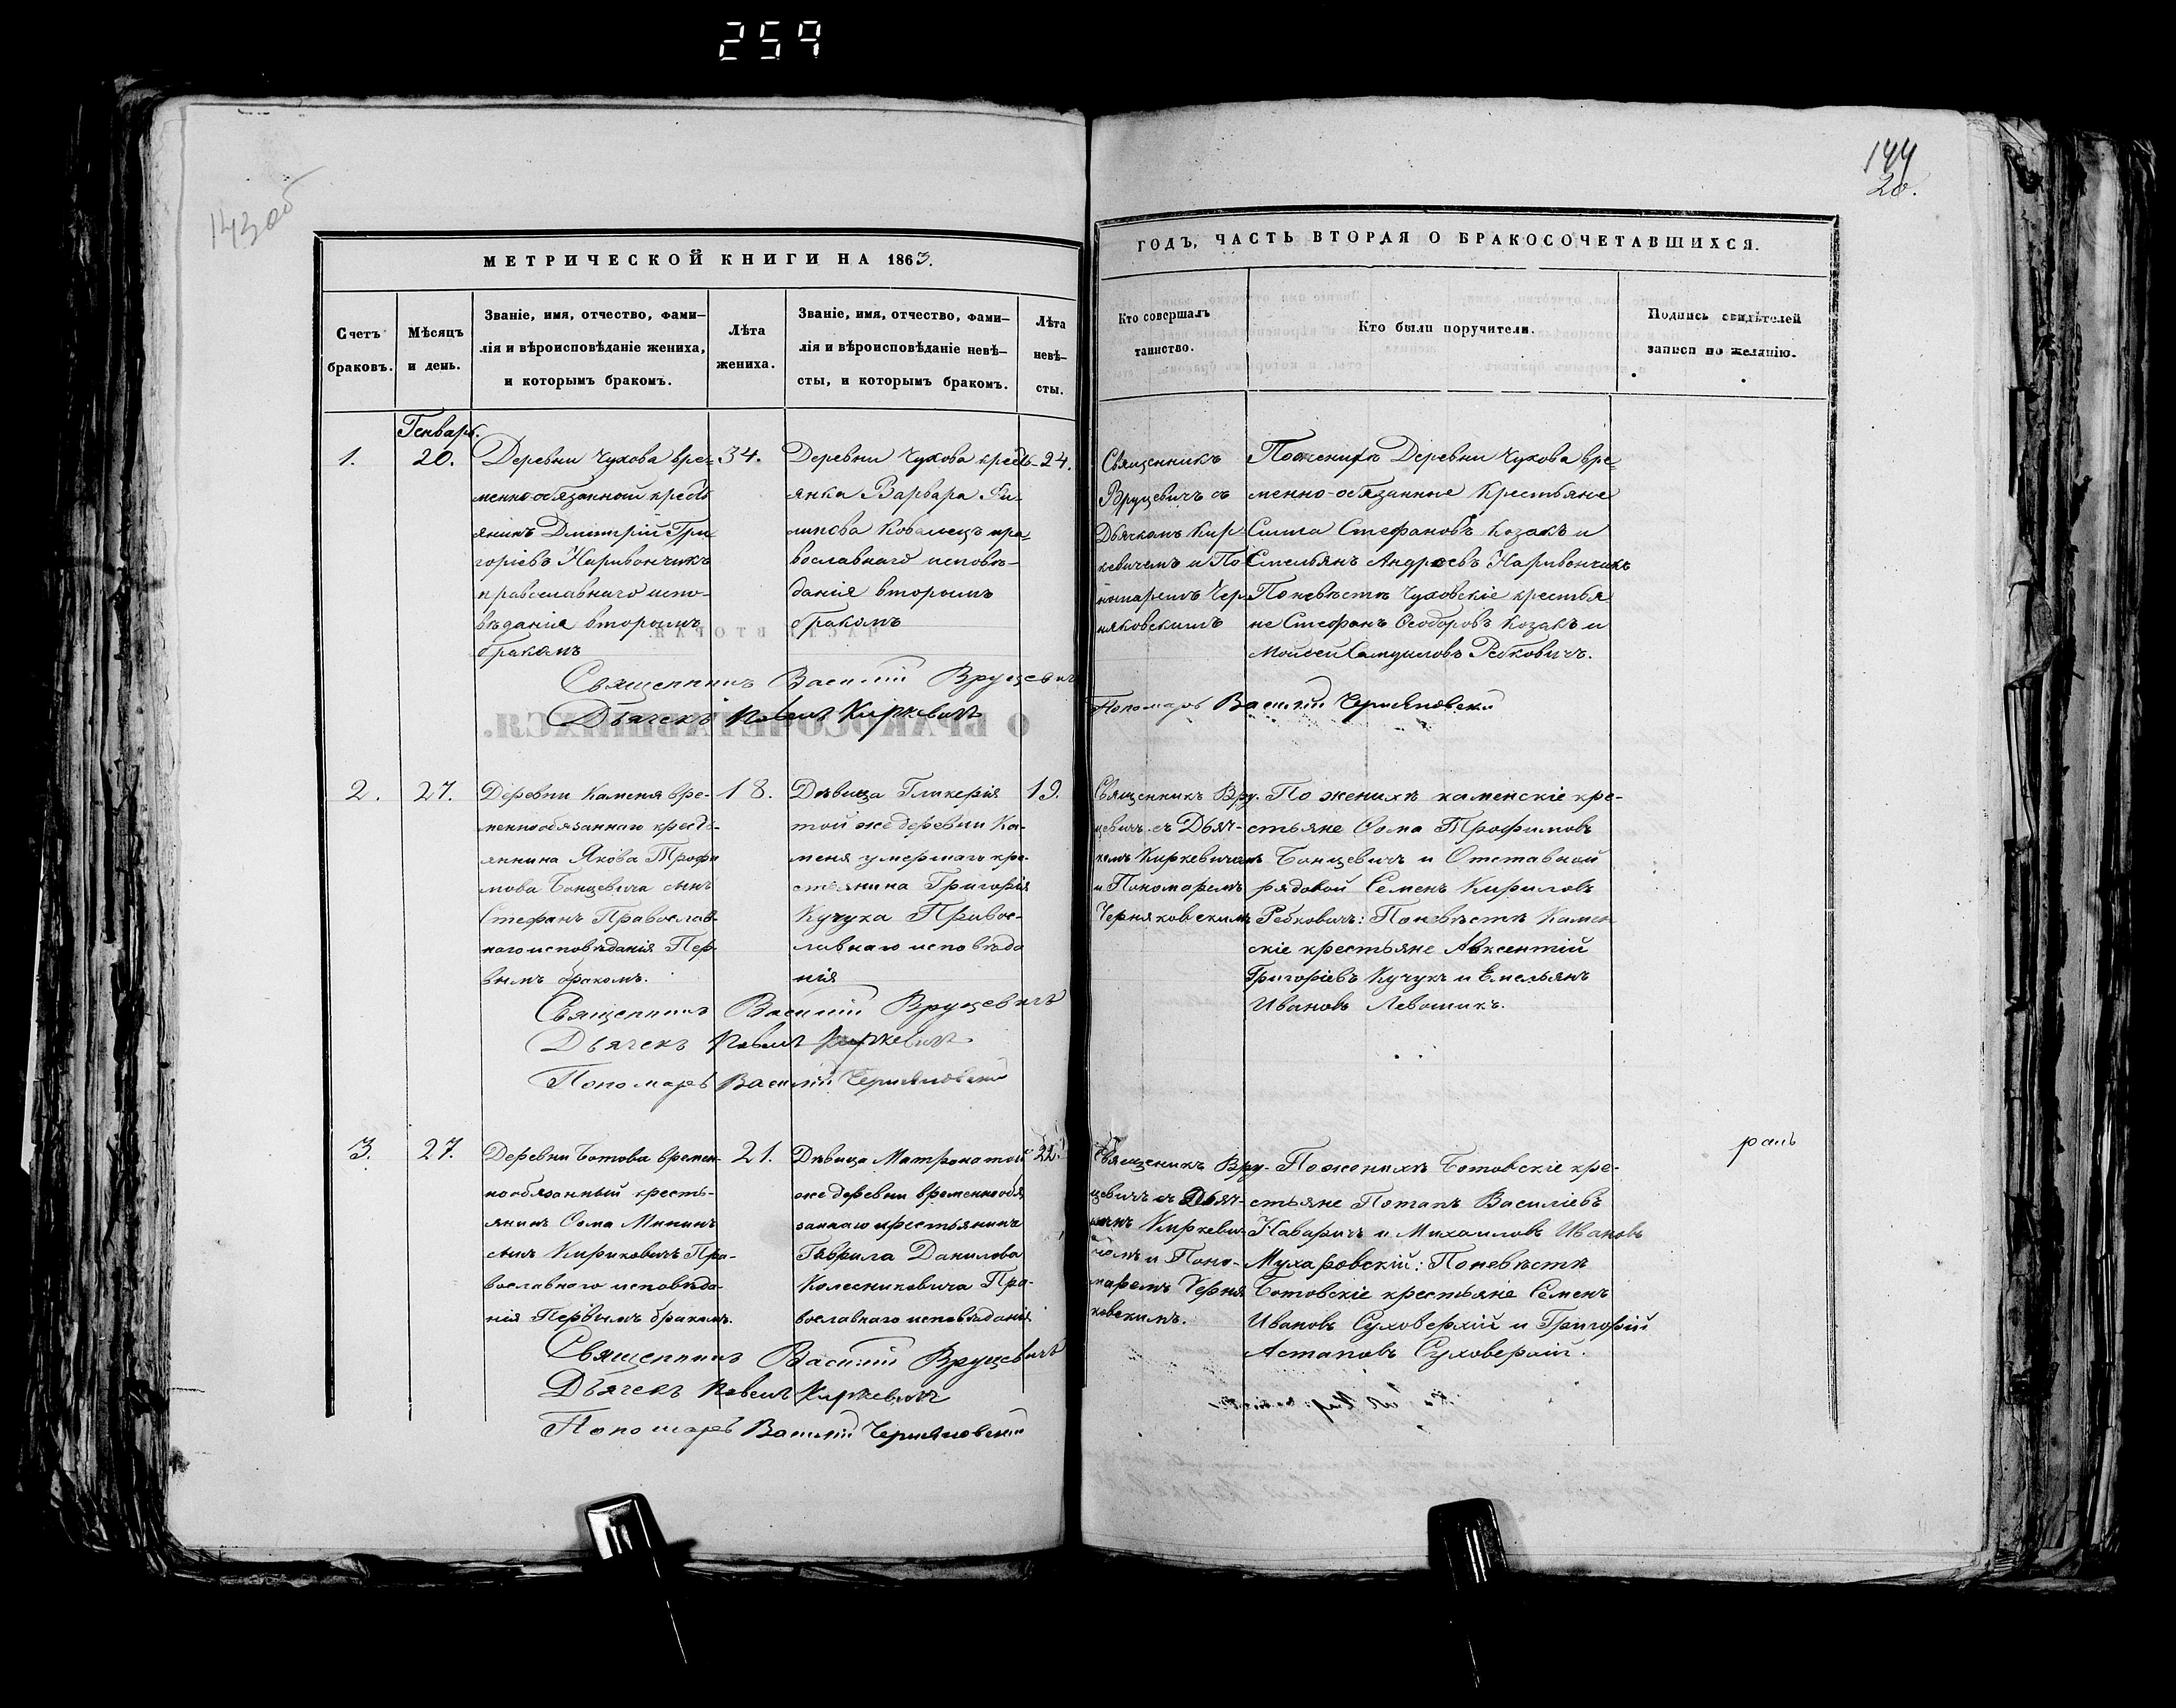 259
143об
144
20.
МЕТРИЧЕСКОЙ КНИГИ НА 1863.
ГОДЪ, ЧАСТЬ ВТОРАЯ О БРАКОСОЧЕТАВШИХСЯ.
Счетъ
браковъ.
Мѣсяцъ
и день.
Званіе, имя, отчество, фами–
лія и вѣроисповѣданіе жениха,
и которымъ бракомъ.
Лѣта
жениха.
Званіе, имя, отчество, фами–
лія и вѣроисповѣданіе невѣ–
сты, и которымъ бракомъ.
Лѣта
невѣ–
сты.
Кто совершалъ
таинство.
Кто были поручители.
Подпись свидѣтелей
записи по желанію.
Генварь.
1.
20.
Деревни Чухова вре-
менно-обязанный кресть
янинъ Димитрій Гри
горіевъ Наривончикъ
православнаго испо-
вѣданія вторымъ
бракомъ
34.
Деревни Чухова кресть-
янка Варвара Фи-
липова Ковалецъ пра-
вославнаго исповѣ-
данія вторымъ
бракомъ
24.
Священникъ
Вруцевичъ съ
Дьячкомъ Кир-
кевичемъ и По
номаремъ Чер
няковскимъ
По женихѣ Деревни Чухова вре-
менно-обязанные Крестьяне
Стефановъ Козакъ и
Емельянъ Андреевъ Наривончикъ
По невѣстѣ Чуховскіе крестья
не Стефанъ Ѳеодоровъ Козакъ и
Мойсей Самуиловъ Рабковичъ.
Священникъ Василій Вруцевичъ
Дьячекъ Павелъ Киркевичъ
Пономарь Василій Черняковскій
2.
27.
Деревни Каменя вре-
меннообязаннаго кресть-
янина Якова Трофи
мова Бонцевича сынъ
Стефанъ Православ-
наго исповѣданія Пер
вымъ бракомъ.
18.
Дѣвица Гликерія
той же деревни Ка-
меня умершаго кре-
стьянина Григорія
Кучука Правос-
лавнаго исповѣда
нія
19.
Священникъ Вру-
цевичъ съ Дьяч-
комъ Киркевичемъ
и Пономаремъ
Черняковскимъ
По женихѣ каменскіе кре-
стьяне Ѳома Трофимовъ
Бонцевичъ и Отставной
рядовой Семенъ Кириловъ
Рабковичъ: По невѣстѣ Камен
скіе крестьяне Авксентій
Григоріевъ Кучукъ и Емельянъ
Ивановъ Левошикъ.
Священникъ Василій Вруцевичъ
Дьячекъ Павелъ Киркевичъ
Пономарь Василій Черняковскій
3.
27.
Деревни Ботова времен-
нообязанный кресть-
янинъ Ѳома Мининъ
сынъ Кириковичъ Пра-
вославнаго исповѣда
нія Первымъ бракомъ.
21.
Дѣвица Матрона той
же деревни временнообя
заннаго крестьянина
Гаврила Данилова
Колесниковича Пра-
вославнаго исповѣданія
22.
Священникъ Вру-
цевичъ съ Дьяч-
комъ Киркеви-
чемъ и Поно-
маремъ Черня
ковскимъ.
По женихѣ Ботовскіе кре-
стьяне Потапъ Василіевъ
Наваричъ и Михаиловъ Ивановъ
Мухаровскій: По невѣстѣ
Ботовскіе крестьяне Семенъ
Ивановъ Суховерхій и Григорій
Астаповъ Суховерхій.
Священникъ Василій Вруцевичъ
Дьячекъ Павелъ Киркевичъ
Пономарь Василій Черняковскій